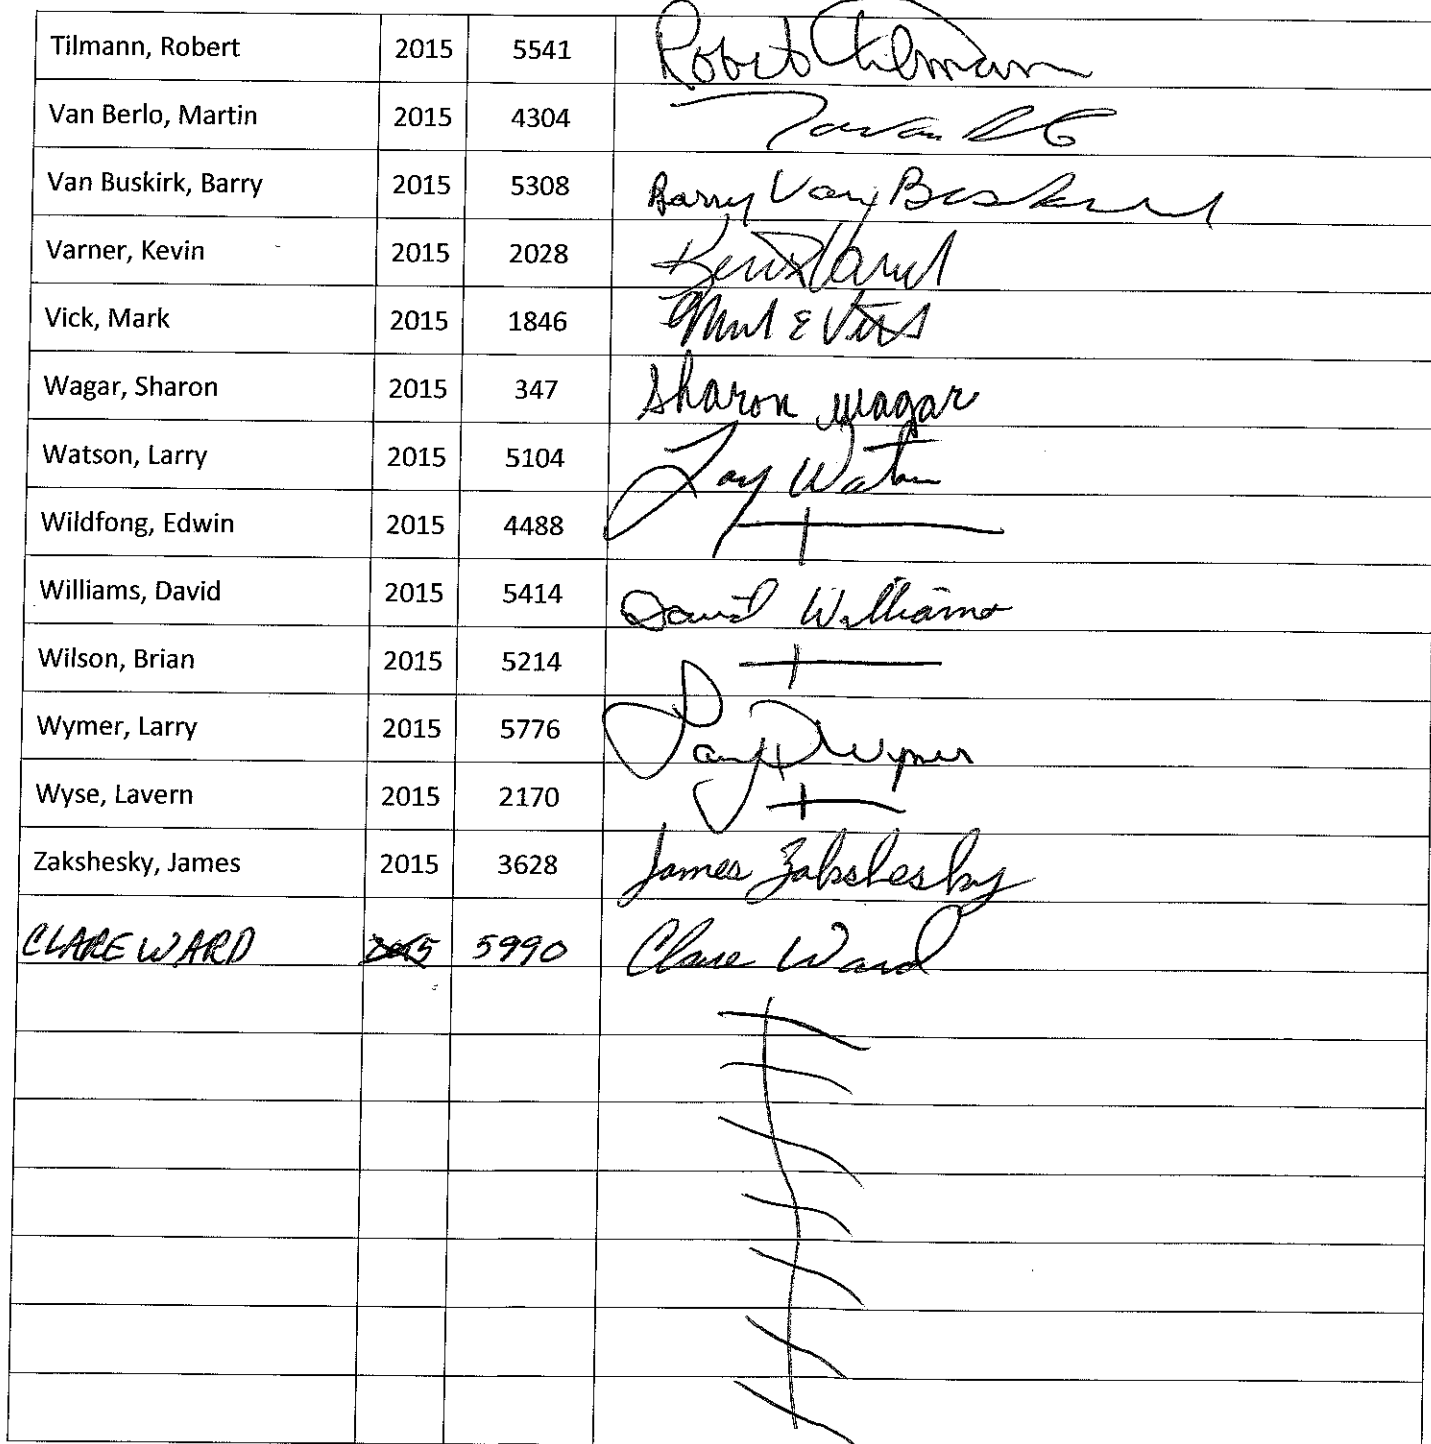 Tilmann, Robert 2015 5541 Robert Tilmann
Van Berlo, Martin 2015 4304
Van Buskirk, Barry 2015 5308 Barry Van Buskirk
Varner, Kevin 2015 2028
Vick, Mark 2015 1846
Wagar, Sharon 2015 347 Sharon Wagar
Watson, Larry 2015 5104 Larry Watson
Wildfong, Edwin 2015 4488
Williams, David 2015 5414 David Williams
Wilson, Brian 2015 5214
Wymer, Larry 2015 5776 Larry D Wymer
Wyse, Lavern 2015 2170
Zakshesky, James 2015 3628 James Zakshesky
CLARE WARD 2015 5990 Clare Ward